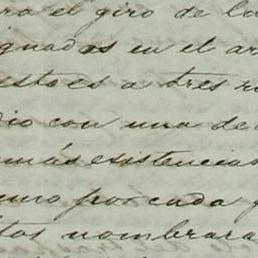 ra el giro de la
ignadas en el ar
esto es a tres
dio con una de
más existencias
uno por cada
tos nombrara